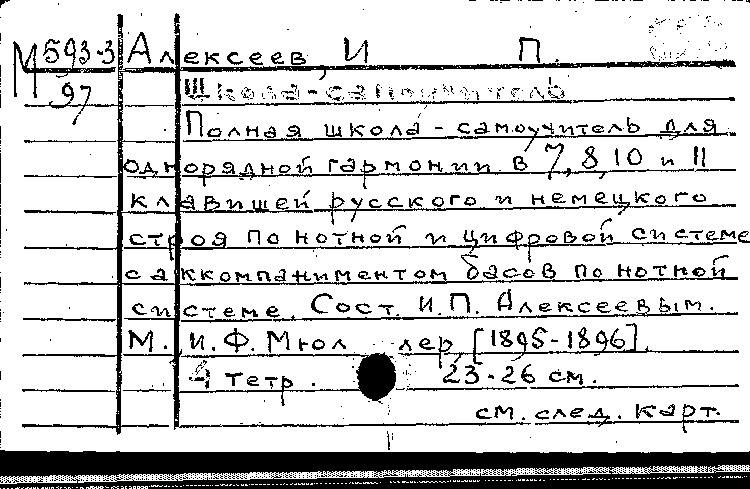 М 593-3 Алексеев, И П.
97 Школа-самоучитель
Полная школа-самоучитель для
однорядной гармонии в 7, 8, 10 и 11
клавишей русского и немецкого
строя по нотной и цифровой системе
с аккомпаниментом басов по нотной
системе. Сост. И.П. Алексеевым.
М. И.Ф. Мюллер, [1895-1896].
4 тетр. 23-26 см.
см. след. карт.